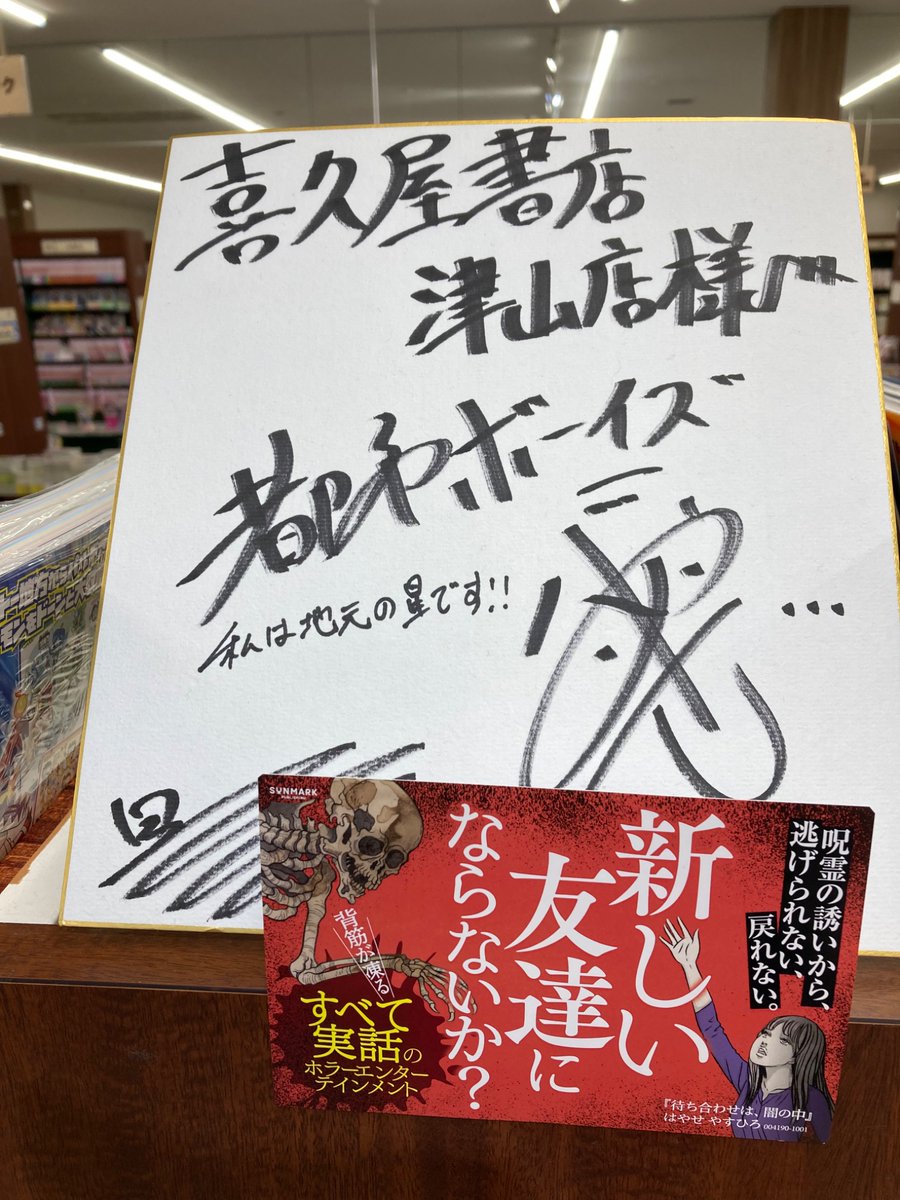 喜久屋書店
津山店様
都市ボーイズ
私は地元の星です!!
SUNMARK
PUBLISHING
呪霊の誘いから、
逃げられない、
戻れない。
新しい
友達に
ならないか?
背筋が凍る
すべて
実話の
ホラーエンター
テインメント
『待ち合わせは、闇の中』
はやせ やすひろ 004190-1001